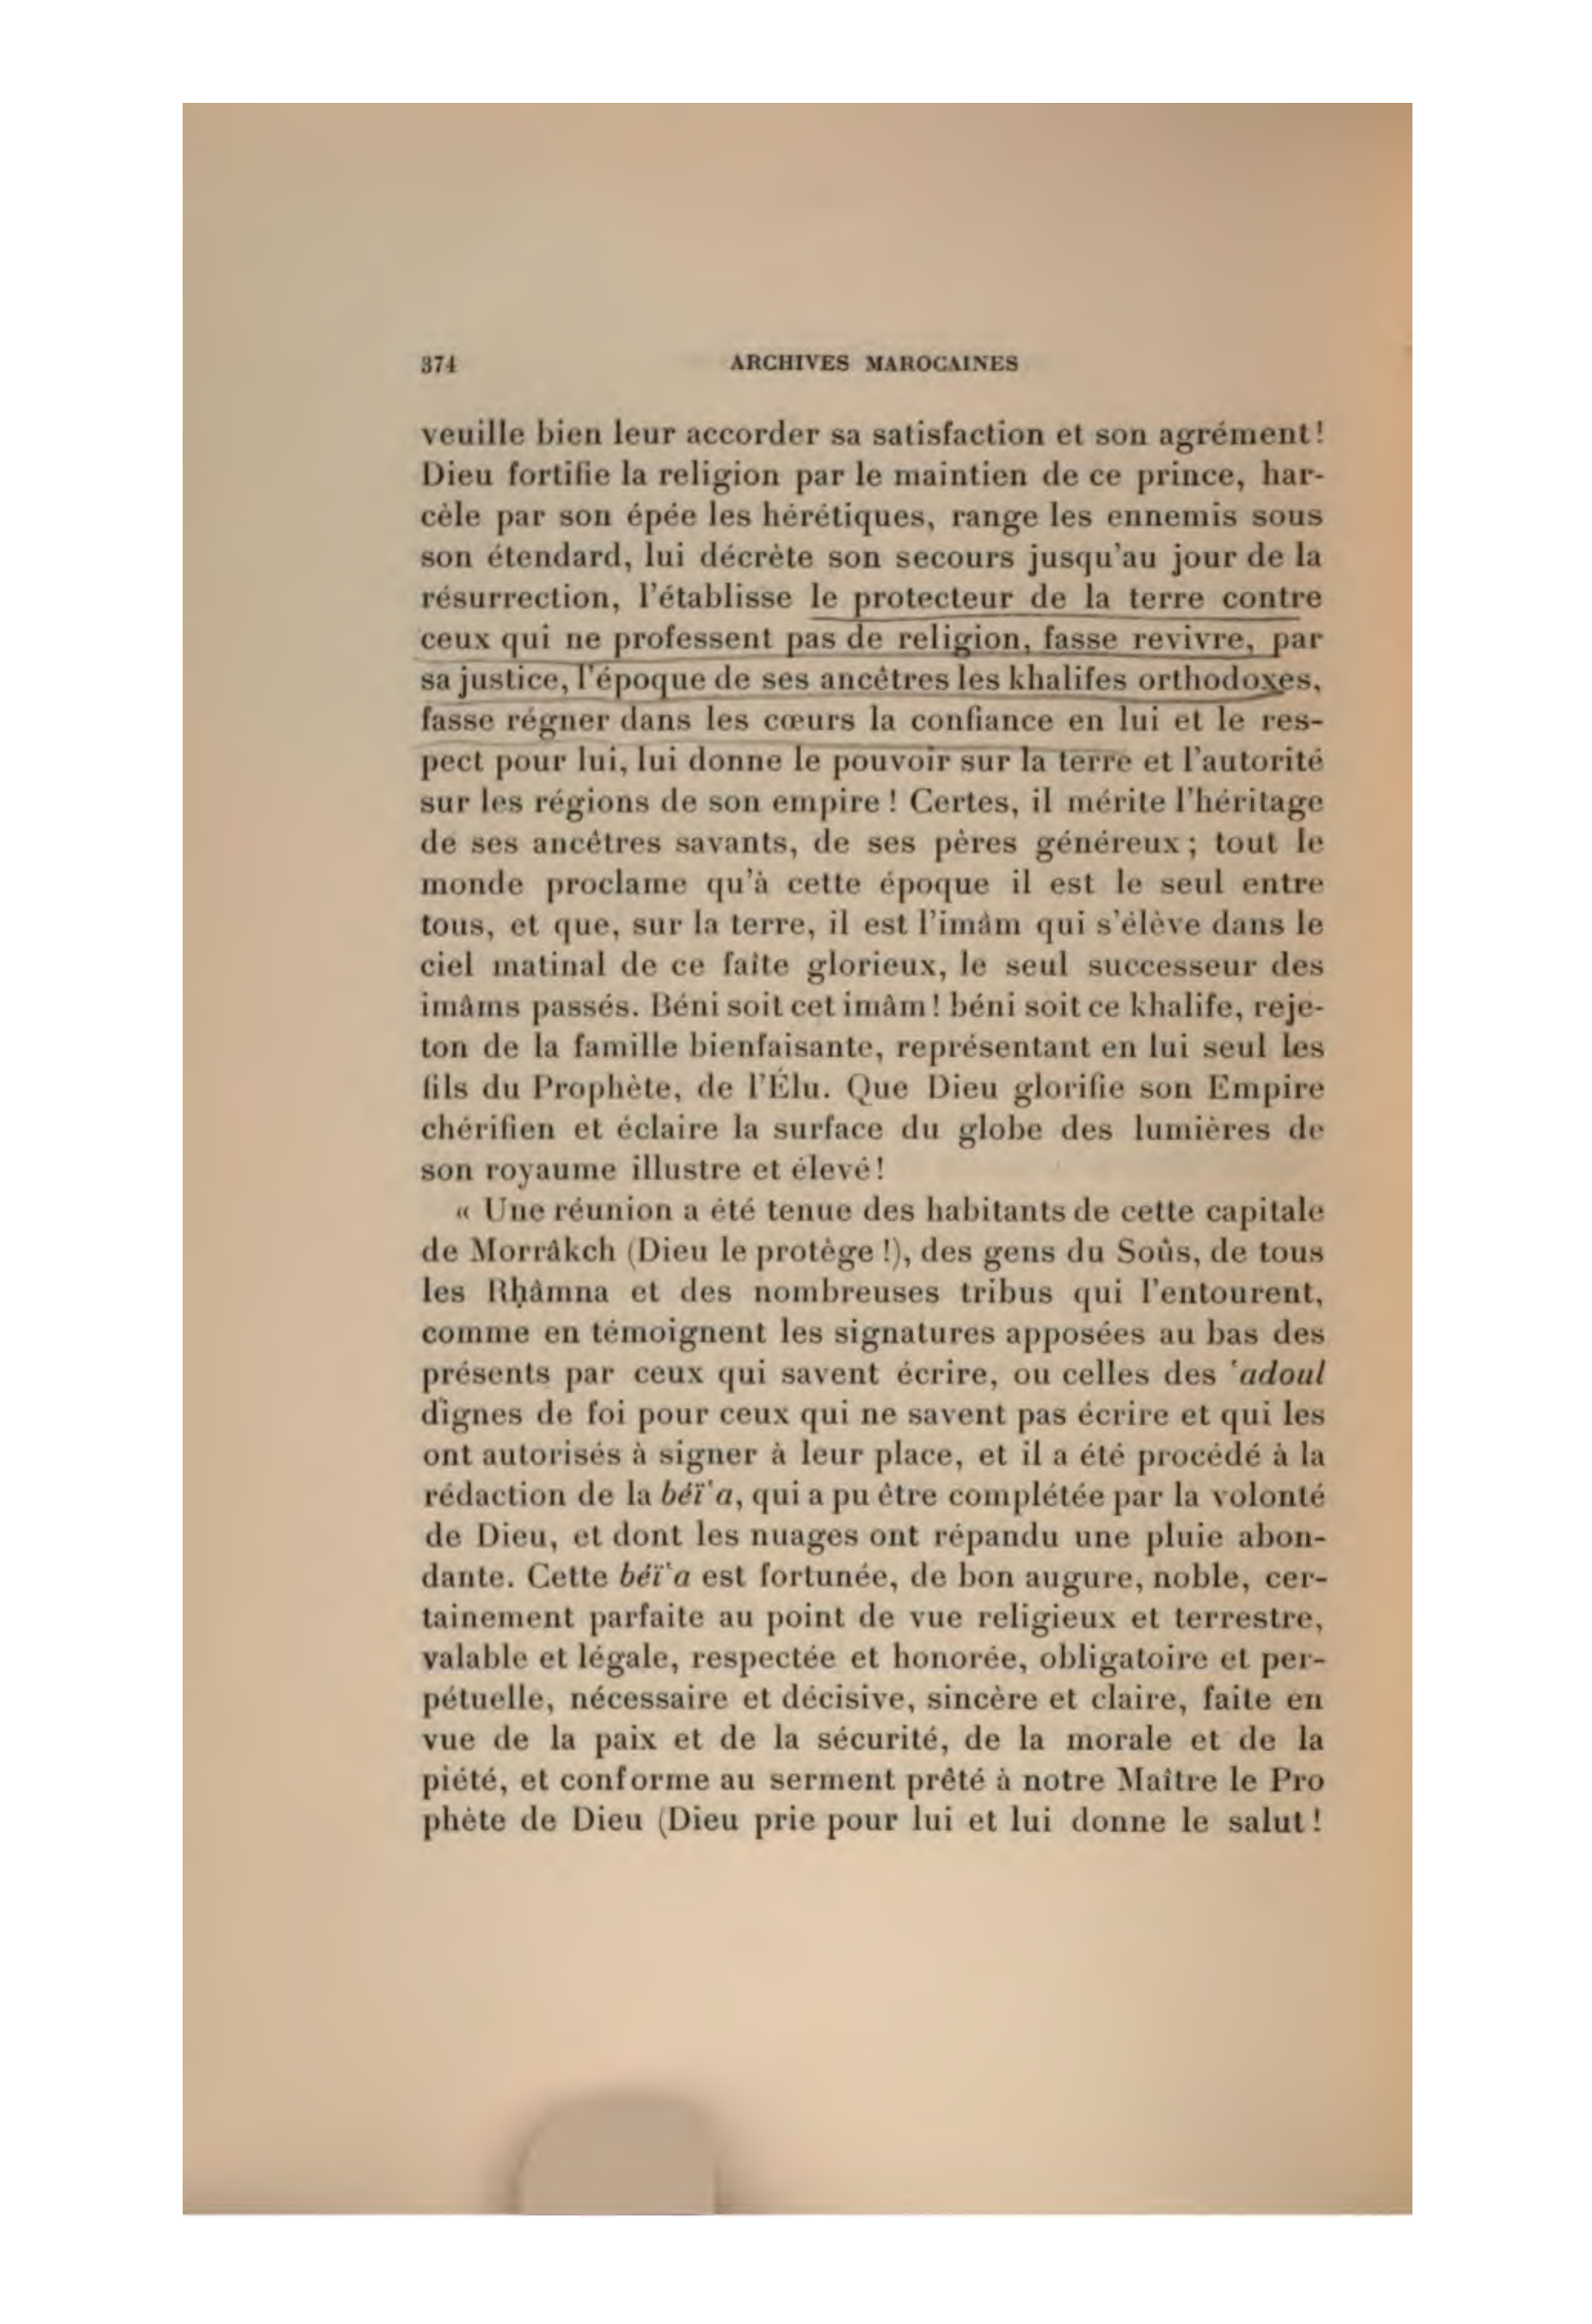 374 ARCHIVES MAROCAINES
veuille bien leur accorder sa satisfaction et son agrément!
Dieu fortifie la religion par le maintien de ce prince, har-
cèle par son épée les hérétiques, range les ennemis sous
son étendard, lui décrète son secours jusqu'au jour de la
résurrection, l'établisse le protecteur de la terre contre
ceux qui ne professent pas de religion, fasse revivre, par
sa justice, l'époque de ses ancêtres les khalifes orthodoxes,
fasse régner dans les cœurs la confiance en lui et le res-
pect pour lui, lui donne le pouvoir sur la terre et l'autorité
sur les régions de son empire ! Certes, il mérite l'héritage
de ses ancêtres savants, de ses pères généreux ; tout le
monde proclame qu'à cette époque il est le seul entre
tous, et que, sur la terre, il est l'imâm qui s'élève dans le
ciel matinal de ce faîte glorieux, le seul successeur des
imâms passés. Béni soit cet imâm ! béni soit ce khalife, reje-
ton de la famille bienfaisante, représentant en lui seul les
fils du Prophète, de l'Élu. Que Dieu glorifie son Empire
chérifien et éclaire la surface du globe des lumières de
son royaume illustre et élevé!
« Une réunion a été tenue des habitants de cette capitale
de Morrâkch (Dieu le protège !), des gens du Soûs, de tous
les Rḥâmna et des nombreuses tribus qui l'entourent,
comme en témoignent les signatures apposées au bas des
présents par ceux qui savent écrire, ou celles des 'adoul
dignes de foi pour ceux qui ne savent pas écrire et qui les
ont autorisés à signer à leur place, et il a été procédé à la
rédaction de la béï'a, qui a pu être complétée par la volonté
de Dieu, et dont les nuages ont répandu une pluie abon-
dante. Cette béï'a est fortunée, de bon augure, noble, cer-
tainement parfaite au point de vue religieux et terrestre,
valable et légale, respectée et honorée, obligatoire et per-
pétuelle, nécessaire et décisive, sincère et claire, faite en
vue de la paix et de la sécurité, de la morale et de la
piété, et conforme au serment prêté à notre Maître le Pro
phète de Dieu (Dieu prie pour lui et lui donne le salut !